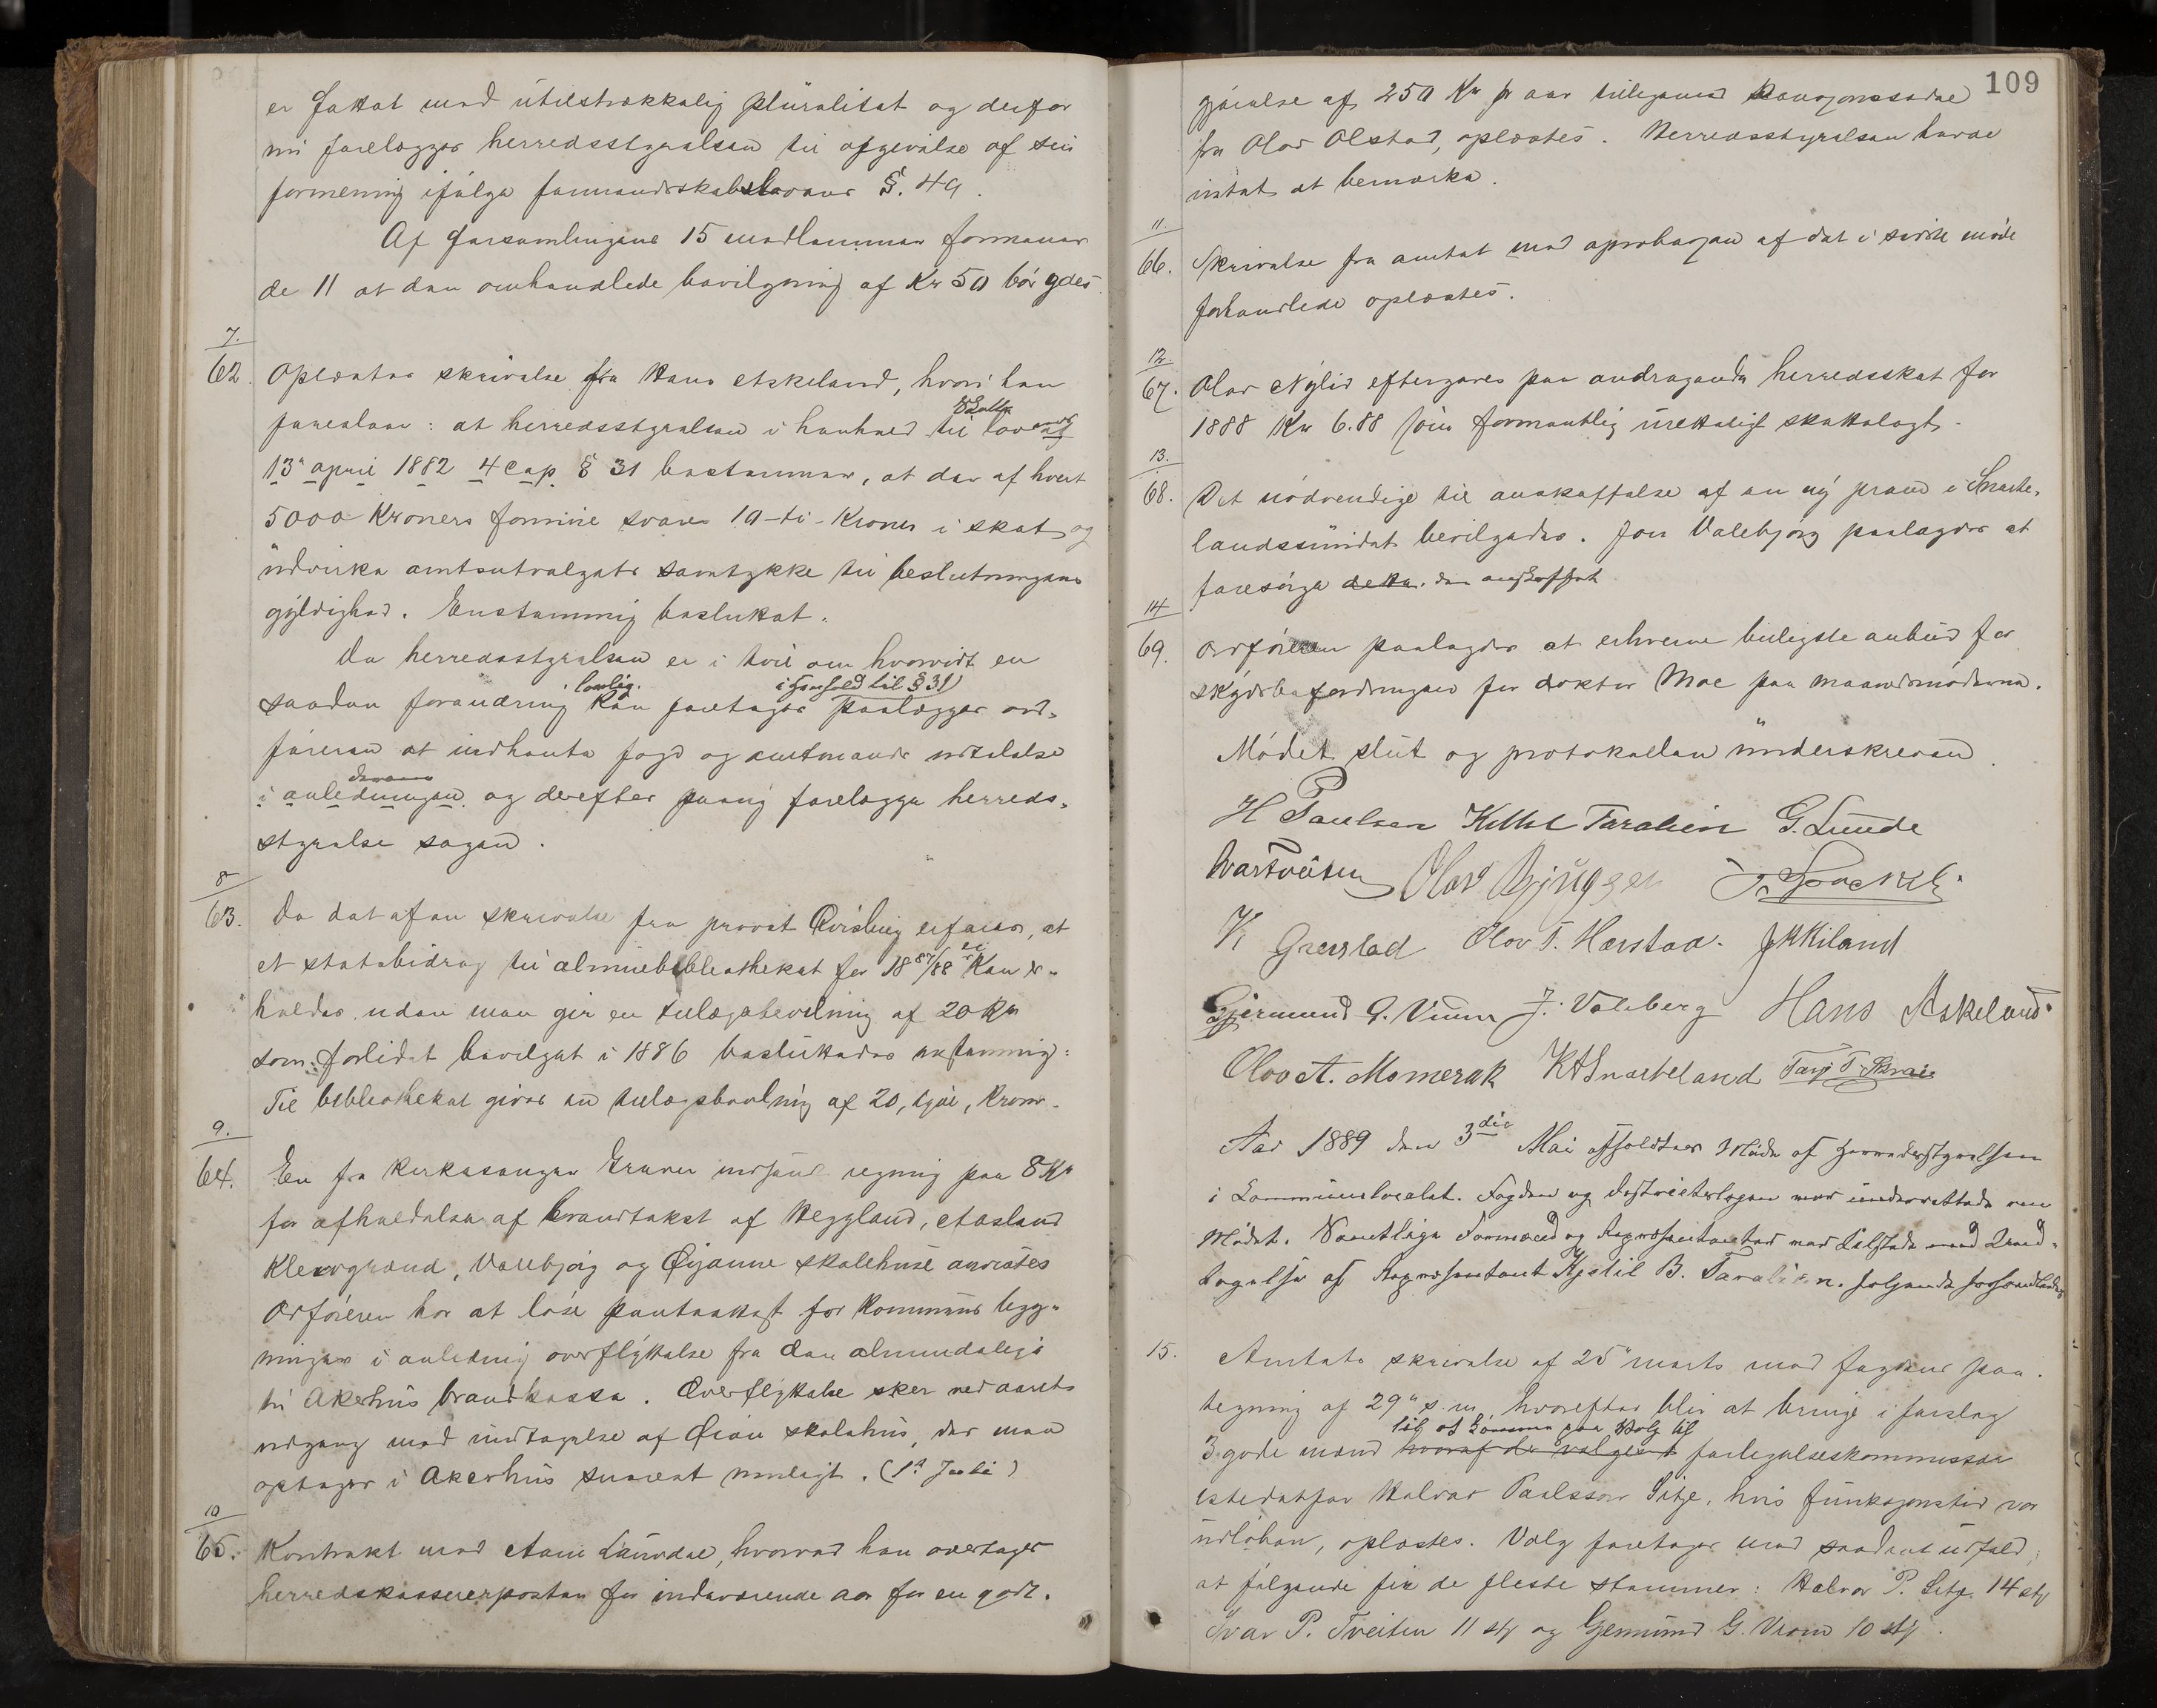 er fattat med utilstrækkelig pluralitat og derfor
nu forelægges herredsstyrelsen til afgivelse af sin
formening ifølge formandskabslovens §. 49.
Af forsamlingens 15 medlemmer formener
de 11 at den omhandlede bevilgning af Kr 50 bør ydes.
7.
62. Oplæstes skrivelse fra Hans Askeland, hvori han
foreslaar: at herredsstyrelsen i henhold til lov af
13" april 1882 4 Cap. § 31 bestemmer, at der af hvert
5000 Kroners formue svares 10 - ti - Kroner i skat og
udvirke amtsutvalgets samtykke til beslutningens
gyldighed. Enstemmig besluttet.
Da herredsstyrelsen er i tvil om hvorvidt en
lovlig i henhold til § 31
saadan forandring kan foretages paalægges ord-
føreren at indhente fogd og amtmands udtalelse
i anledningen og derefter paany forelægge herreds-
styrelse sagen.
8
63. Da det af en skrivelse fra provst Qvisling erfares, at
et statsbidrag til almuebibliothekat for 18 87/88 kan er-
holdes uden man gir en tillægsbevilning af 20 Kr
som forlidet bevilget i 1886 besluttedes enstemmig:
Til bibliotheket gives en tillægsbevilning af 20, tyve, Kroner.
9.
64. En fra kirkesanger Graver indsendt regning paa 8 Kr
for afholdelse af brandtakst af Heggland, Aasland
Klevgrend, Valebjørg og Øyanne skolehuse anvistes
Ordføreren har at løse pantattest for kommunens byg-
ninger i anledning overflyttelse fra den almindelige
til Akerhus brandkasse. Overflyttelse sker ved aarets
udgang med undtagelse af Øian skolehus, der man
optager i Akerhus snarest muligt. (1ste Juli)
10
65. Kontrakt med Aani Landdal, hvorved han overtager
herredskassererposten for indeværende aar for en godt-
109
gjørelse af 250 Kr pr aar tilligemed kaugjonssedel
fra Olav Olstad, oplæstes. Herredsstyrelsen havde
intet at bemærke.
11.
66. Skrivelse fra amtet med aprobasjon af det i sidste møde
forhandlede oplæstes.
12.
67. Olav Nylid eftergaves paa andragende herredsskat for
1888 Kr 6.88 som formentlig uretteligt skattelagt.
13.
68. Det nødvendige til anskaffelse af en ny pram i Snarte-
landssundet bevilgedes. Jon Valebjørg paalagdes at
foresørge dette. den anskaffet
14
69. Ordføreren paalagdes at erhverve billigste anbud for
skydsbefordringen for doktor Moe paa maanedsmøderne.
Mødet slut og protokollen underskreven.
H Paulsen Kittil Taralien G. Lunde
Ivar Tveiten Olav Bjåggen
K Gaarslad Olov T. Herstad. J K Kiland
Gjermund G. Vraam J. Valeberg Hans Askeland
Olov A. Momerak K A Snarteland Tarje T.
Aar 1889 den 3die Mai afholdtes Møde af Herredsstyrelsen
i Kommunelocalet. Fogden og Distrietslægen var underrettede om
Mødet. Samtlige Formænd og Repræsentanter var tilstede med Und-
tagelse af Repræsentant Kjetil B. Taralien. følgende forhandledes
15. Amtets skrivelse af 25" marts med fogdens paa-
tegning af 29" s. m. hvorefter blir at bringe i forslag
til at komme paa Valg til
3 gode mænd hvoraf de vælges 1 forligelseskommissær
istedetfor Halvor Paulsson Sitje, hvis funksjonstid var
udløben, oplæstes. Valg foretages med saadant udfald,
at følgende fik de fleste stemmer: Halvor P. Sitje 14 st,
Ivar P. Tveiten 11 st, og Germund G. Vraam 10 st,.